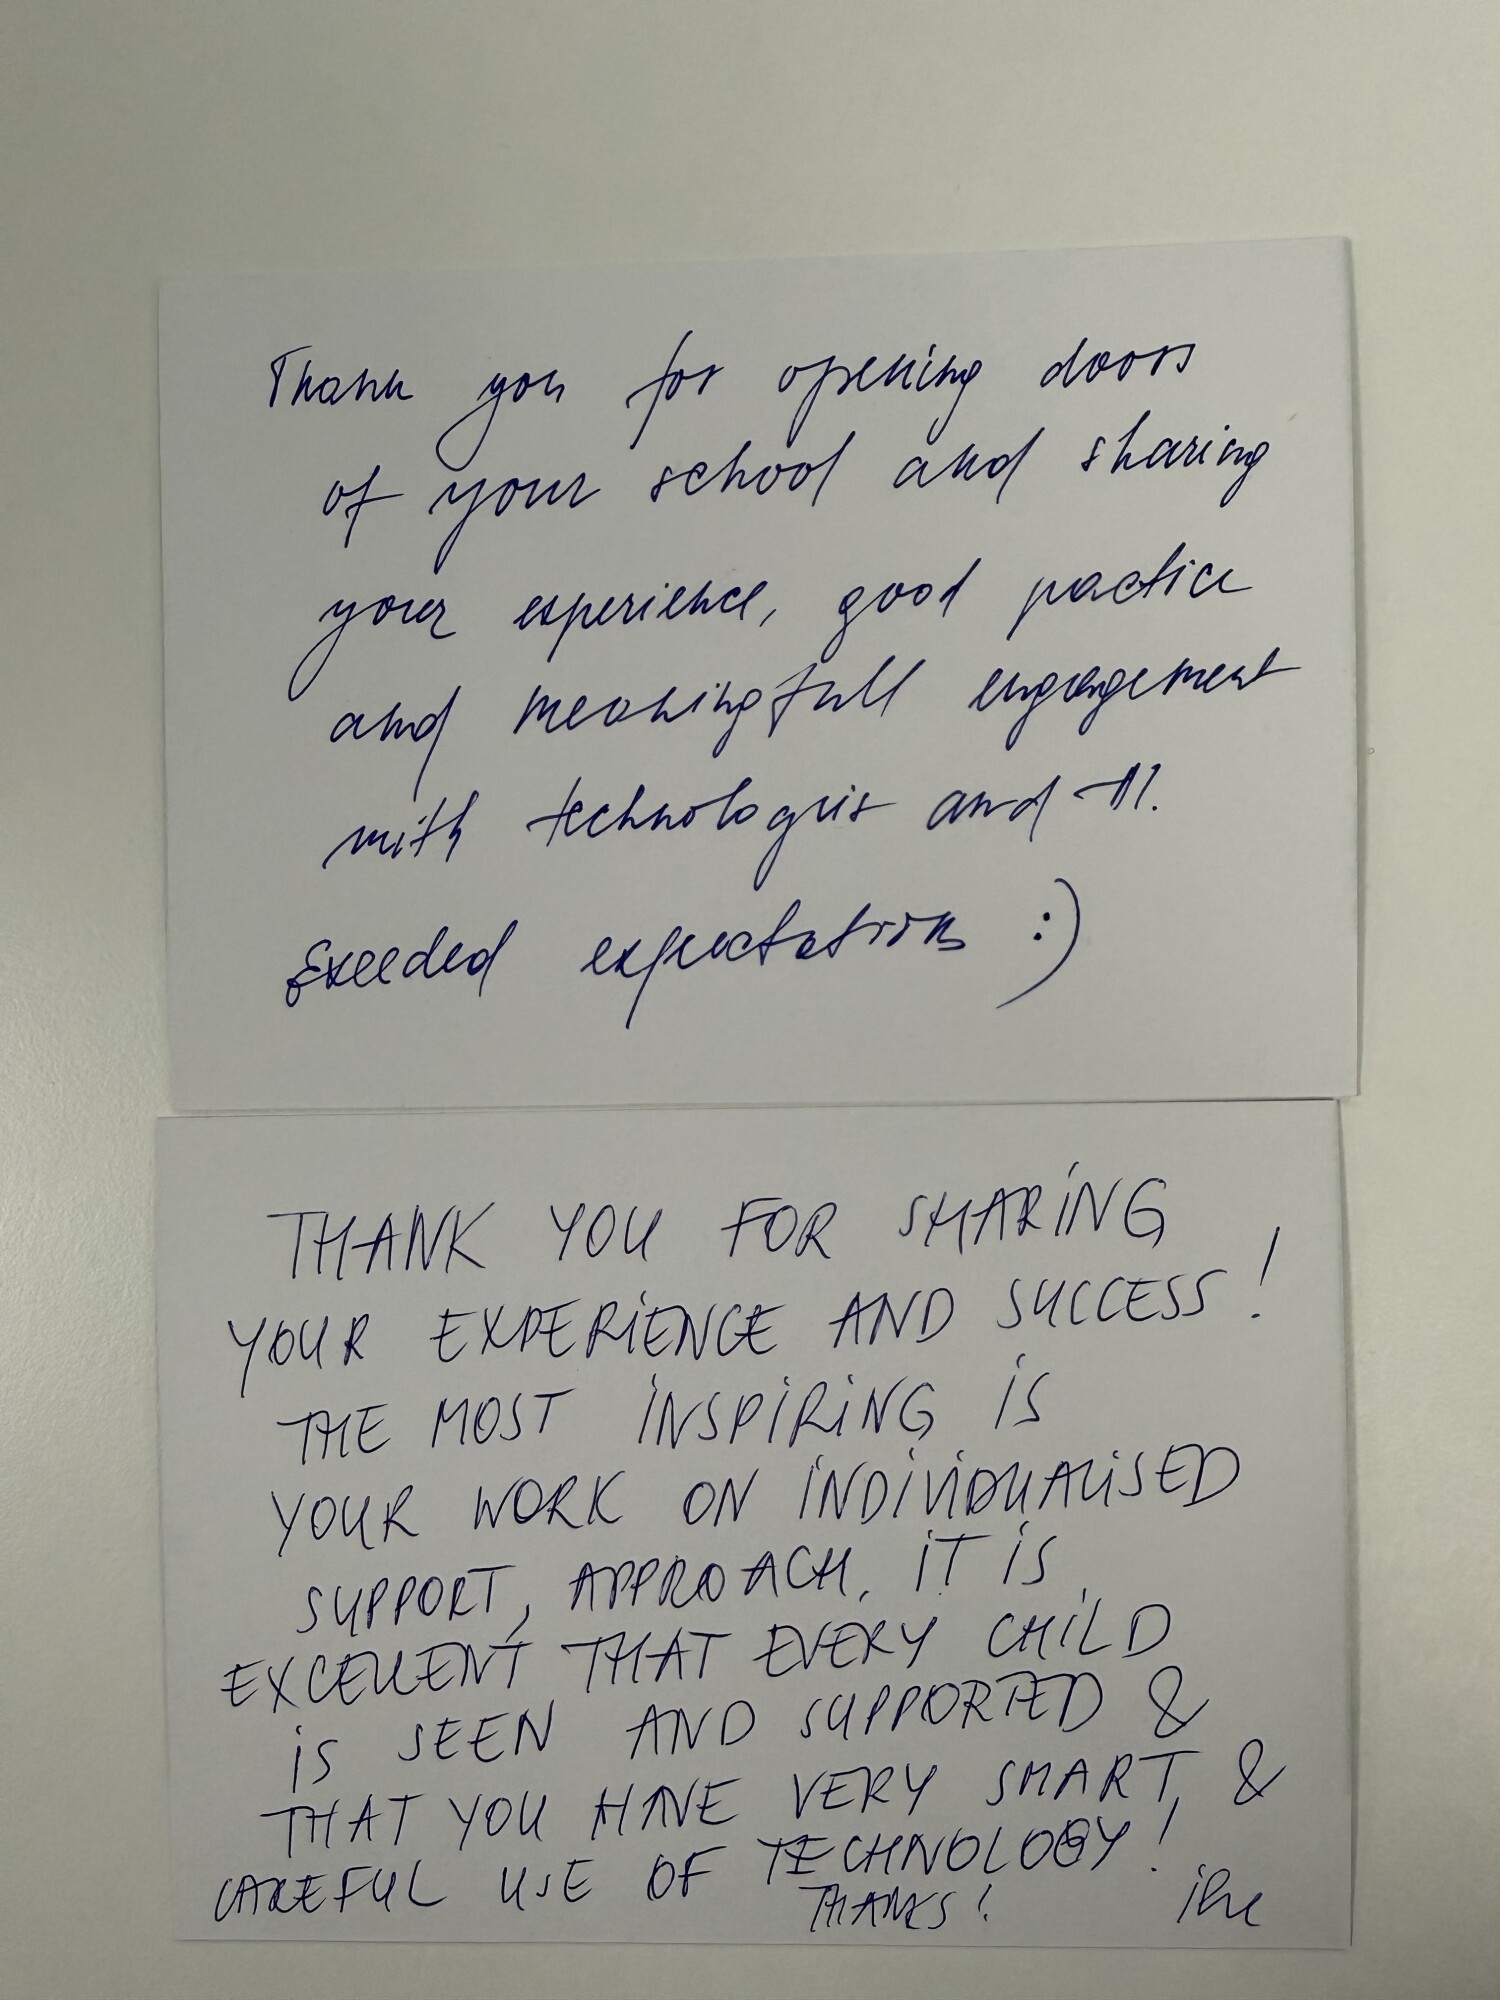 Thank you for opening doors
of your school and sharing
your experience, good practice
and meaningfull engagement
with technologies and AI.
Exeeded expectations :)
THANK YOU FOR SHARING
YOUR EXPERIENCE AND SUCCESS!
THE MOST INSPIRING IS
YOUR WORK ON INDIVIDUALISED
SUPPORT, APPROACH. IT IS
EXCELLENT THAT EVERY CHILD
IS SEEN AND SUPPORTED &
THAT YOU HAVE VERY SMART &
CAREFUL USE OF TECHNOLOGY!
THANKS!